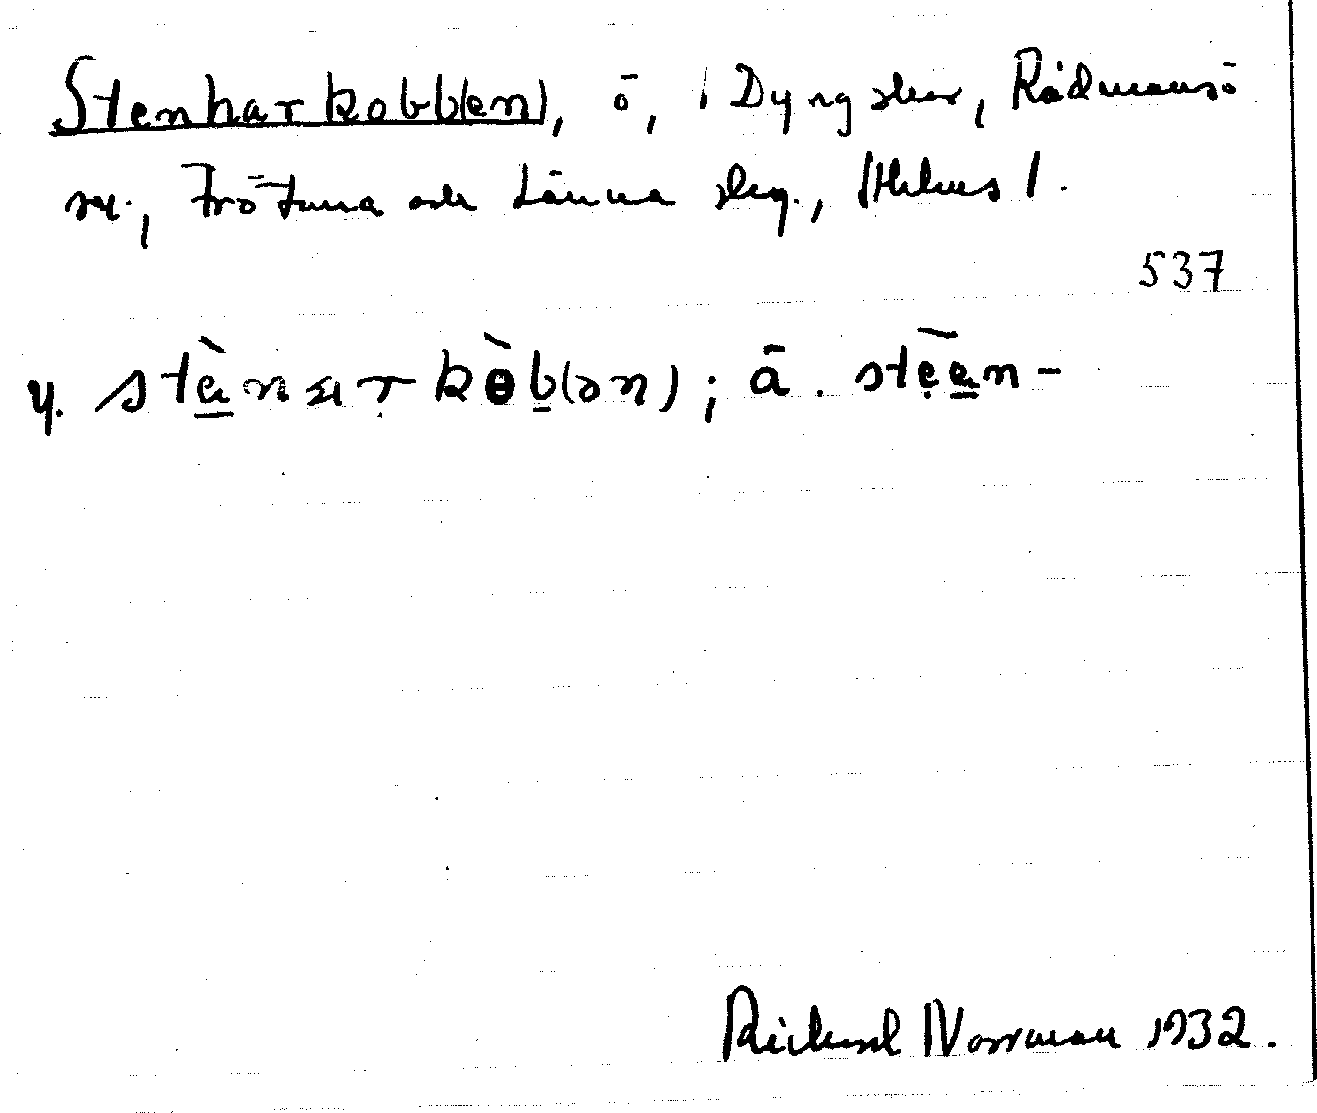 Stenharkobb(en), ö, i Dyngskär, Rådmansö
sn., Frötuna och Länna skg., Sthlms l.
537
y. stènarkòb(ən); ä. stēen-
Rickard Norrman 1932.